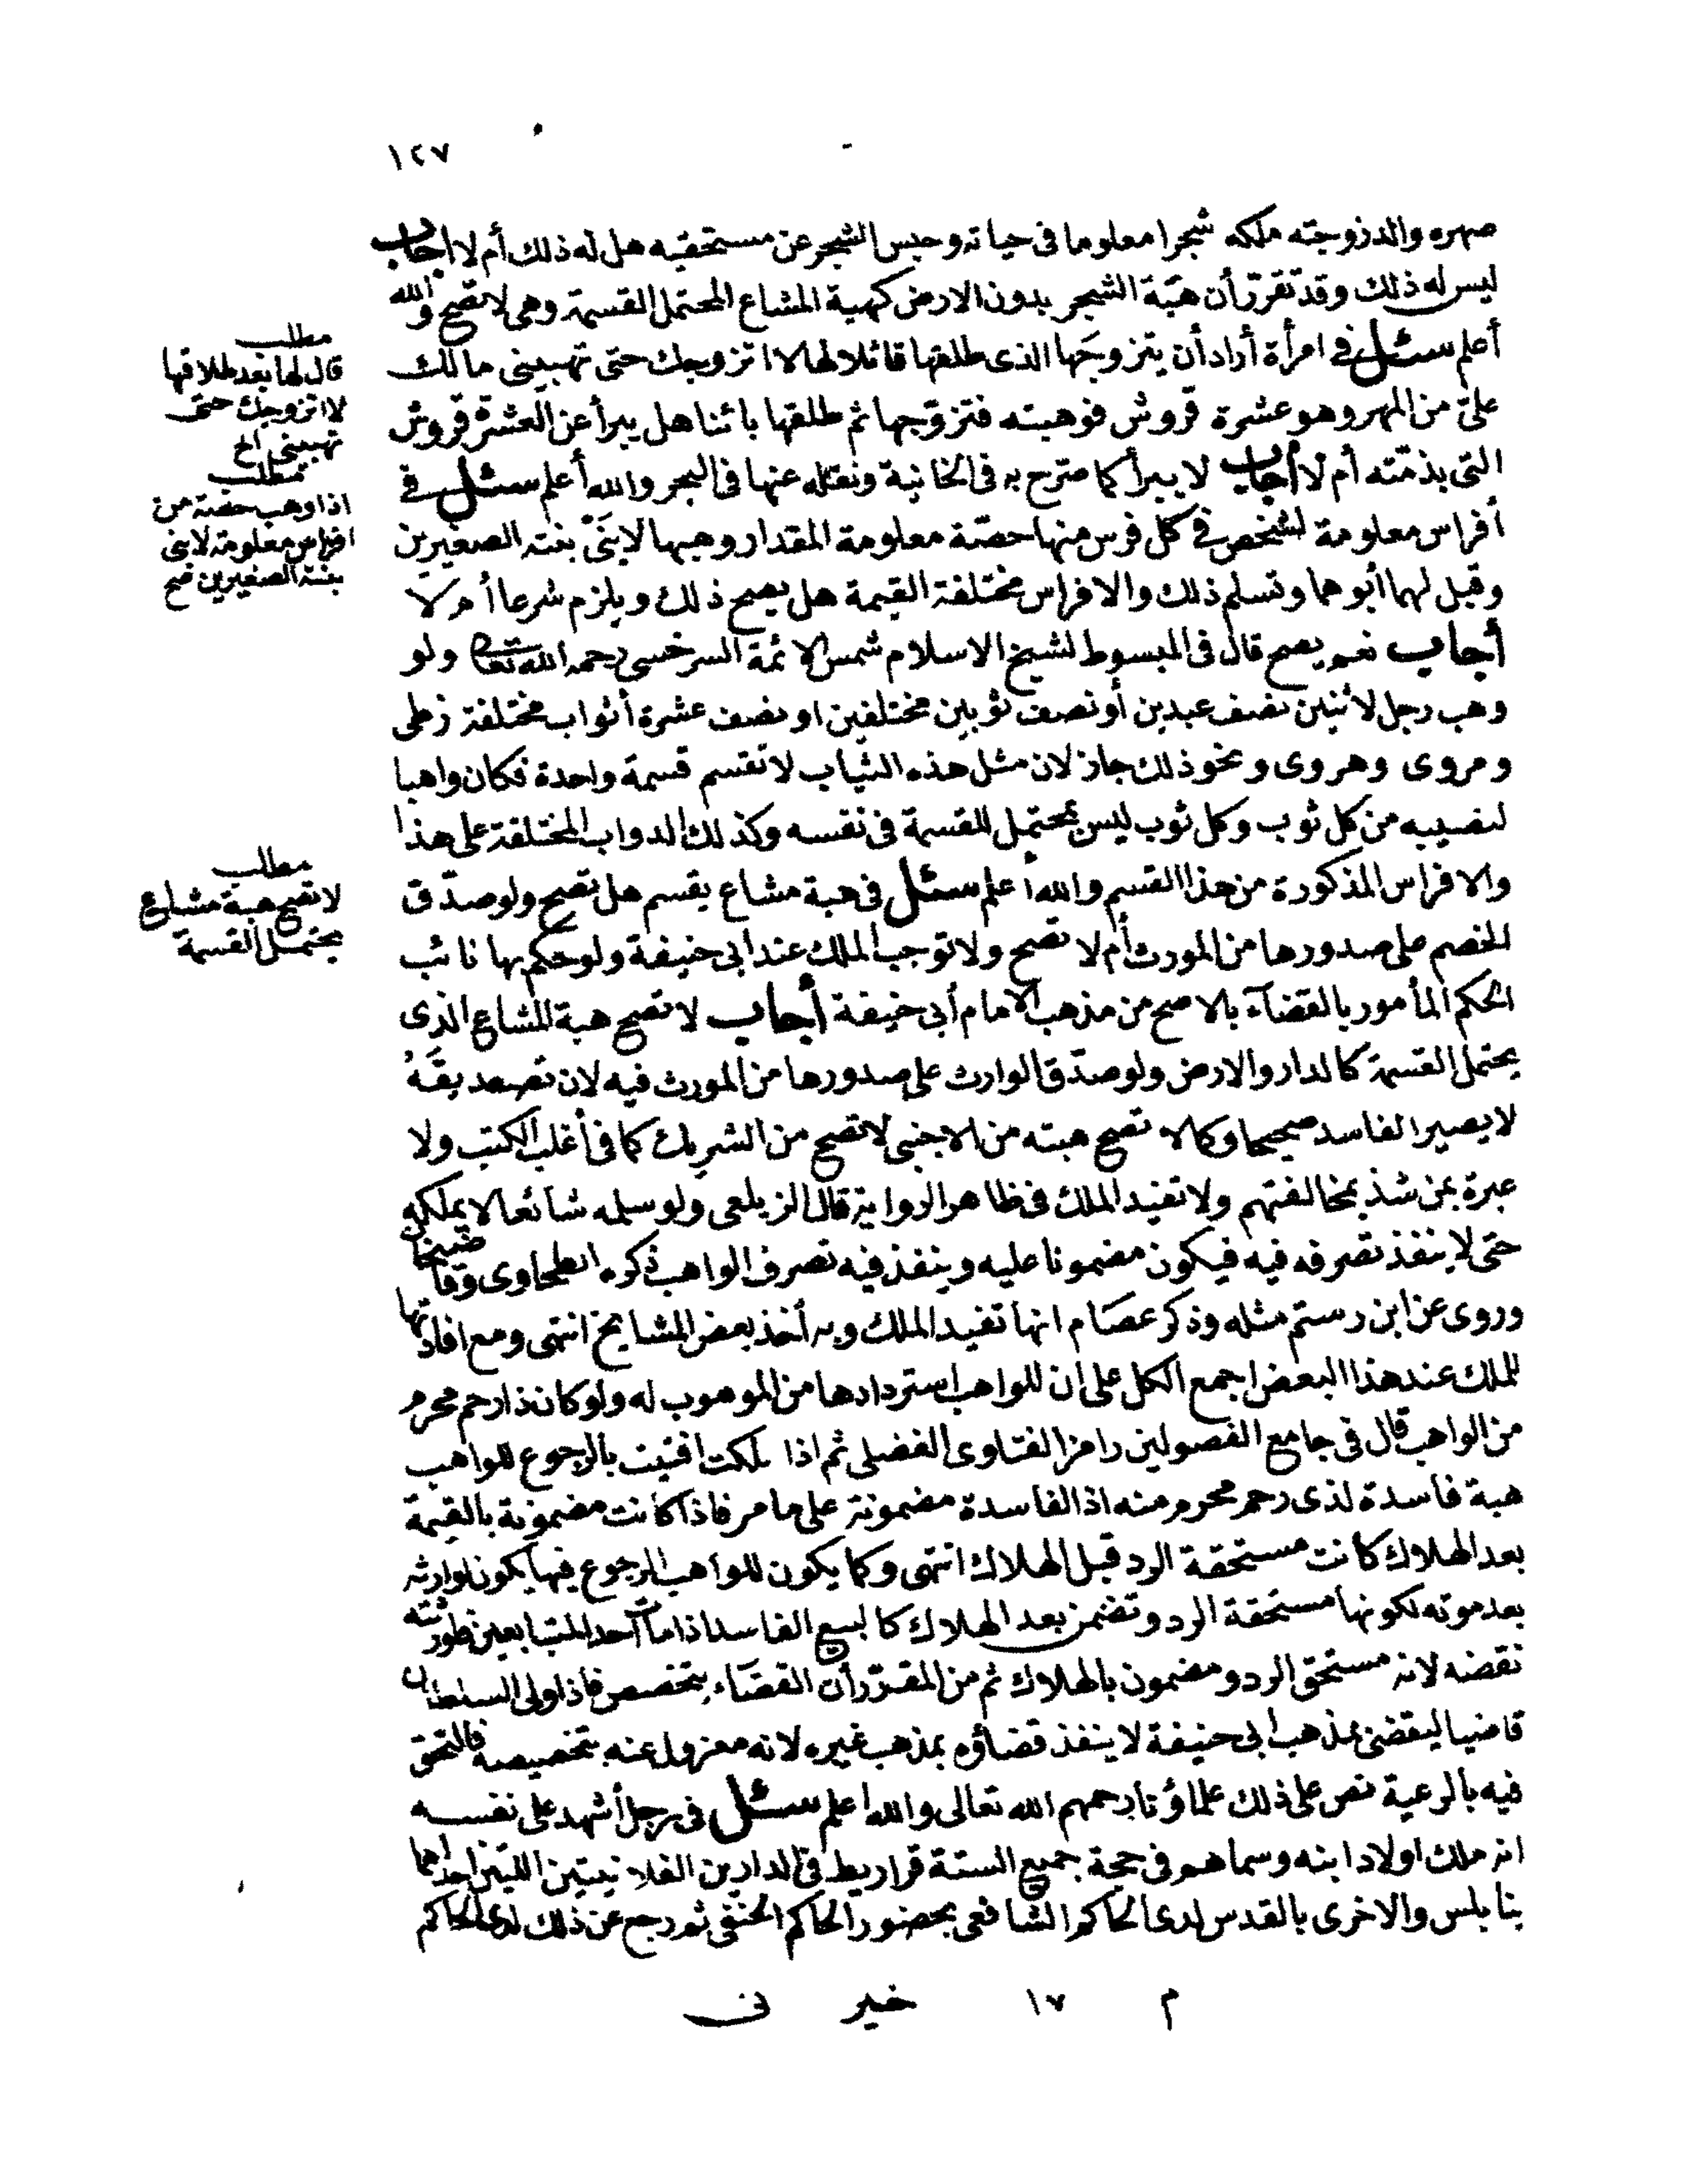 ١٢٧
صهره والد زوجته ملكه شجرا معلوما فى حياته وحبس الشجر عن مستحقيه هل له ذلك أم لا أجاب
ليس له ذلك وقد تقرّر أن هبة الشجر بدون الارض كهبة المشاع المحتمل القسمة وهى لا تصح والله
أعلم سئل فى امرأة أراد أن يتزوجها الذى طلقها قائلا لها لا اتزوجك حتى تهبينى مالك
علىّ من المهر وهو عشرة قروش فوهبته فتزوّجها ثم طلقها بائنا هل يبرأ عن العشرة قروش
التى بذمّته أم لا أجاب لا يبرأ كما صرّح به فى الخانية ونقله عنها فى البحر والله أعلم سئل فى
أفراس معلومة لشخص فى كل فرس منها حصّة معلومة المقدار وهبها لابنَىْ بنته الصغيرين
وقبل لهما أبوهما وتسلم ذلك والافراس مختلفة القيمة هل يصح ذلك ويلزم شرعا أم لا
أجاب نعم يصح قال فى المبسوط لشيخ الاسلام شمس الائمة السرخسى رحمه الله تعالى ولو
وهب رجل لاثنين نصف عبدين أو نصف ثوبين مختلفين او نصف عشرة أثواب مختلفة زطى
ومروى وهروى ونحو ذلك جاز لان مثل هذه الثياب لا تقسم قسمة واحدة فكان واهبا
لنصيبه من كل ثوب وكل ثوب ليس بمحتمل للقسمة فى نفسه وكذلك الدواب المختلفة على هذا
والافراس المذكورة من هذا القسم والله أعلم سئل فى هبة مشاع يقسم هل تصح ولو صدّق
الخصم على صدورها من المورث أم لا تصح ولا توجب الملك عند ابى حنيفة ولو حكم بها نائب
الحكم المأمور بالقضآء بالاصح من مذهب الامام أبى حنيفة أجاب لا تصح هبة المشاع الذى
يحتمل القسمة كالدار والارض ولو صدّق الوارث على صدورها من المورث فيه لان تصديقَهُ
لا يصير الفاسد صحيحا وكما لا تصح هبته من الاجنبى لا تصح من الشريك كما فى أغلب الكتب ولا
عبرة بمن شذ بمخالفتهم ولا تفيد الملك فى ظاهر الرواية قال الزيلعى ولو سلمه شائعا لا يملكه
حتى لا ينفذ تصرفه فيه فيكون مضمونا عليه وينفذ فيه تصرف الواهب ذكره الطحاوى وقاضيخان
وروى عن ابن رستم مثله وذكر عصَام انها تفيد الملك وبه أخذ بعض المشايخ انتهى ومع افادتها
للملك عند هذا البعض اجمع الكل على ان للواهب استردادها من الموهوب له ولو كان ذا رحم محرم
من الواهب قال فى جامع الفصولين رامزا لفتاوى الفضلى ثم اذا هلكت افتيت بالرجوع للواهب
هبة فاسدة لذى رحم محرم منه اذ الفاسدة مضمونة على ما مر فاذا كانت مضمونة بالقيمة
بعد الهلاك كانت مستحقة الرد قبل الهلاك انتهى وكما يكون للواهب الرجوع فيها يكون لوارثه
بعد موته لكونها مستحقة الرد وتضمن بعد الهلاك كالبيع الفاسد اذا مات أحد المتبايعين فلورثته
نقضه لانه مستحق الرد ومضمون بالهلاك ثم من المقرّر أن القضَاء يتخصص فاذا ولى السلطان
قاضيا ليقضى بمذهب أبى حنيفة لا ينفذ قضاؤه بمذهب غيره لانه معزول عنه بتخصيصه فالتحق
فيه بالرعية نص على ذلك علماؤنا رحمهم الله تعالى والله أعلم سئل فى رجل أشهد على نفسه
انه ملك اولاد ابنه وسماهم فى حجة جميع الستة قراريط فى الدارين الفلانيتين اللتين احداهما
بنابلس والاخرى بالقدس لدى الحاكم الشافعى بحضور الحاكم الحنفى ثم رجع عن ذلك لدى الحاكم
م ١٧ خير نى
مطلب
قال لها بعد طلاقها
لا اتزوجك حتى
تهبينى الخ
مطلب
اذا وهب حصّة من
افراس معلومة لابنى
بنته الصغيرين صح
مطلب
لا تصح هبة مشاع
يحتمل القسمة